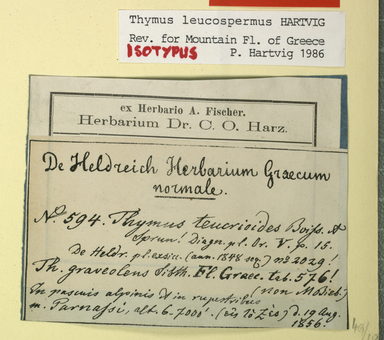 Thymus leucospermus HARTVIG
Rev. for Mountain Fl. of Greece
ISOTYPUS P. Hartvig 1986
ex Herbario A. Fischer.
Herbarium Dr. C. O. Harz.
De Heldreich Herbarium Graecum
normale.
No. 594. Thymus teucrioides Boiss. et
Sprun! Diagn. pl. Or. V. p. 15.
De Heldr. pl. exsicc. (ann. 1848 no) no 2029!
Th. graveolens Sibth. Fl. Graec. tab. 576!
(non M. Bieb.)
In pascuis alpinis et in rupestribus
m. Parnassi, alt. 6-7000'. (εἰς τὸ Ζίο) d. 19 Aug.
1856!